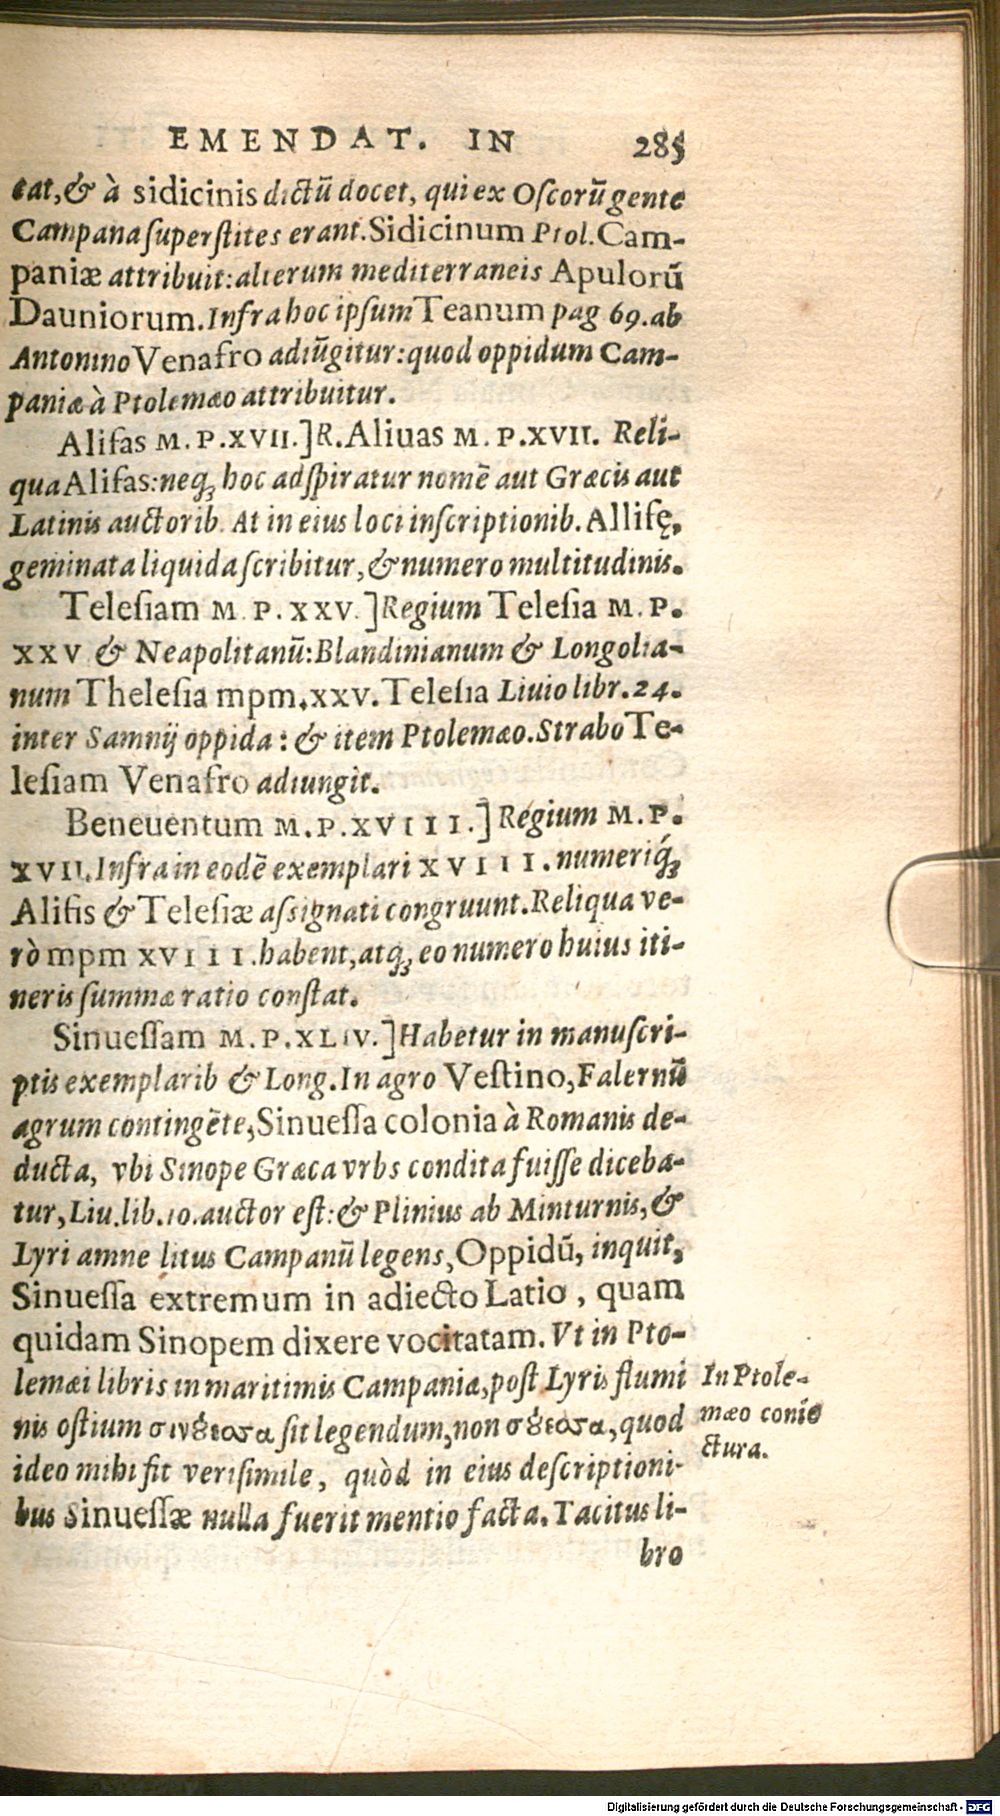 EMENDAT. IN 285
tat, & à sidicinis dictū docet, qui ex Oscorū gente
Campana superstites erant. Sidicinum Ptol. Cam-
paniæ attribuit: alterum mediterraneis Apulorū
Dauniorum. Infra hoc ipsum Teanum pag 69. ab
Antonino Venafro adiūgitur: quod oppidum Cam-
paniæ à Ptolemæo attribuitur.
Alifas M. P. XVII.] R. Aliuas M. P. XVII. Reli-
qua Alifas: neq; hoc adspiratur nomē aut Græcis aut
Latinis auctorib. At in eius loci inscriptionib. Allifę,
geminata liquida scribitur, & numero multitudinis.
Telesiam M. P. XXV.] Regium Telesia M. P.
XXV & Neapolitanū: Blandinianum & Longolia-
num Thelesia mpm. xxv. Telesia Liuio libr. 24.
inter Samnij oppida: & item Ptolemæo. Strabo Te-
lesiam Venafro adiungit.
Beneuentum M. P. XVIII.] Regium M. P.
XVII. Infra in eodē exemplari XVIII. numeriq́;
Alifis & Telesiæ assignati congruunt. Reliqua ve-
rò mpm XVIII. habent, atq; eo numero huius iti-
neris summæ ratio constat.
Sinuessam M. P. XLIV.] Habetur in manuscri-
ptis exemplarib & Long. In agro Vestino, Falernū
agrum contingēte, Sinuessa colonia à Romanis de-
ducta, vbi Sinope Græca vrbs condita fuisse diceba-
tur, Liu. lib. 10. auctor est: & Plinius ab Minturnis, &
Lyri amne litus Campanū legens, Oppidū, inquit,
Sinuessa extremum in adiecto Latio, quam
quidam Sinopem dixere vocitatam. Vt in Pto-
lemæi libris in maritimis Campaniæ, post Lyris flumi
nis ostium σινȣ́εσσα sit legendum, non σȣ́εσσα, quod
ideo mihi fit verisimile, quòd in eius descriptioni-
bus Sinuessæ nulla fuerit mentio facta. Tacitus li-
bro
In Ptole-
mæo conie
ctura.
Digitalisierung gefördert durch die Deutsche Forschungsgemeinschaft - DFG